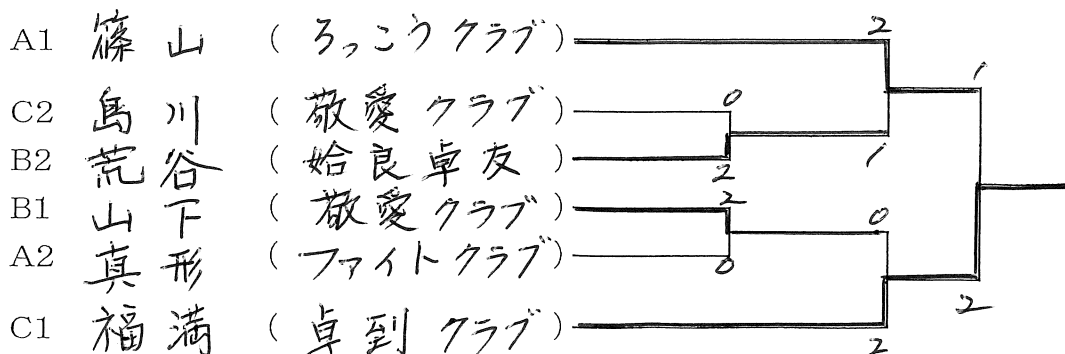 A1 篠山 (ろっこうクラブ) 2
1
C2 島川 (敬愛クラブ) 0
B2 荒谷 (姶良卓友) 2 1
B1 山下 (敬愛クラブ) 2 0
A2 真形 (ファイトクラブ) 0
2
C1 福満 (卓到クラブ) 2